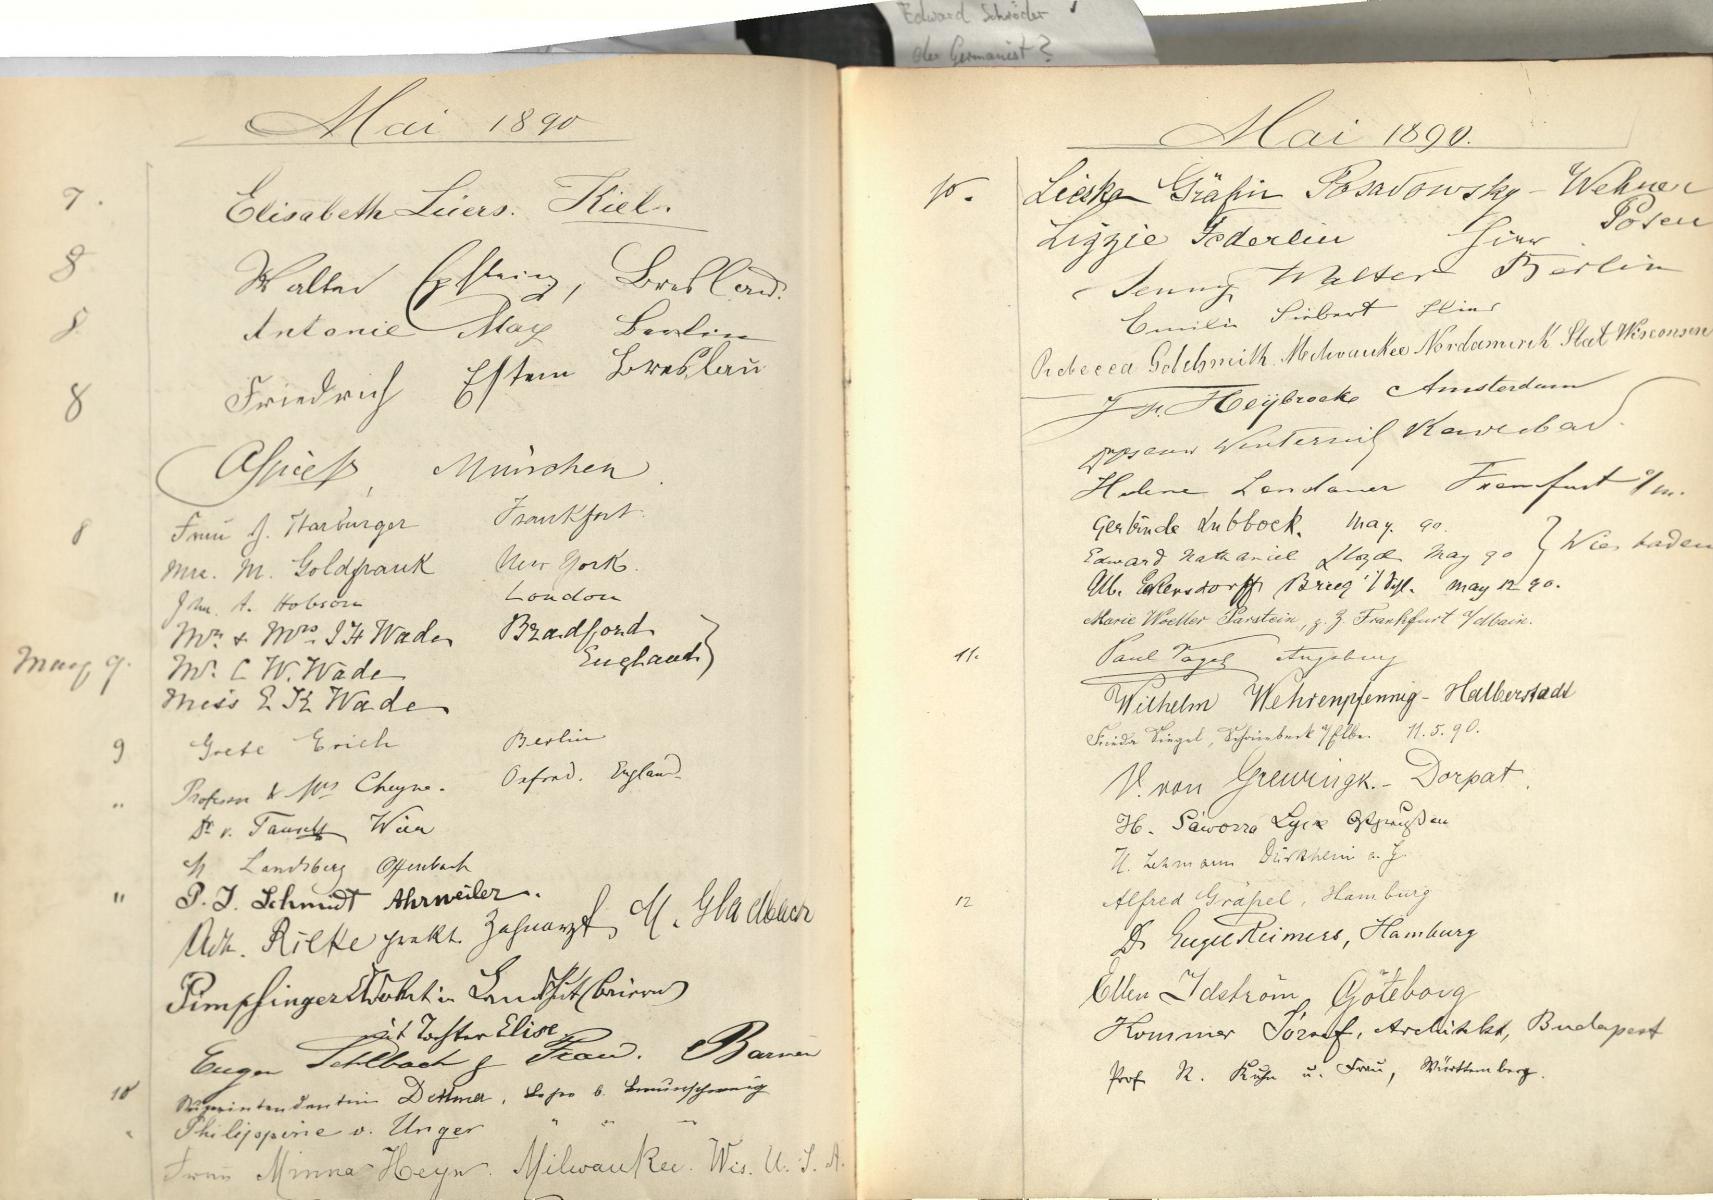 Edward Schröder
der Germanist?
Mai 1890
7. Elisabeth Lüers. Kiel.
8 Walter Epstein, Breslau.
8. Antonie May Berlin
8 Friedrich Epstein Breslau
ASpiess, München
8 Frau J. Harburger Frankfort.
Mrs. M. Goldfrank New York.
Jhn. A. Hobson London
Mr. & Mrs J H Wade Bradford
England
May 9. Mr. C W. Wade
Miss E K Wade
9 Grete Erich Berlin
" Professor & Mrs Cheyne. Oxford. England
Dr v. Tausch Wien
M Landsberg Offenbach
" P. J. Schmidt Ahrweiler.
Ad. Rilke prakt. Zahnarzt, M. Gladbach
Pimpfinger Landshut (Baiern)
mit Tochter Elise.
Eugen Sehlbach & Frau. Barmen
10 Superintendentin Dettmer, b. Braunschweig
" Philippine v. Unger " " "
Frau Minna Heyn. Milwaukee. Wis. U. S. A.
Mai 1890.
10. Lieska Gräfin Posadowsky-Wehner
Posen
Lizzie Federlin hier
Jenny Walter Berlin
Emilie Siebert Hier
Rebecca Goldsmith. Milwaukee Nordamerik Stat Wisconsin
Heybroek Amsterdam
Winternitz
Helene Landauer Frankfurt a/m.
Gertrude Lubbock. May. 90.
Edward Nathaniel Lloyd May 90 } Wiesbaden
Alb. Eckersdorff Brieg May 12 90.
Marie Woeller Parstein, z. Z. Frankfurt a/Main.
11. Paul Vogel Augsburg
Wilhelm Wehrenpfennig - Halberstadt
Frieda Siegel, Schönebeck a/Elbe. 11.5.90.
V. von Grewingk. - Dorpat.
H. Saworra Lyck Ostpreußen
H. Lehmann Dürkheim a. H.
12 Alfred Gräpel, Hamburg
Dr Eugen Reimers, Hamburg
Ellen Idström Göteborg
Hommer József, Architekt, Budapest
Prof R. Kuhn u. Frau, Württemberg.